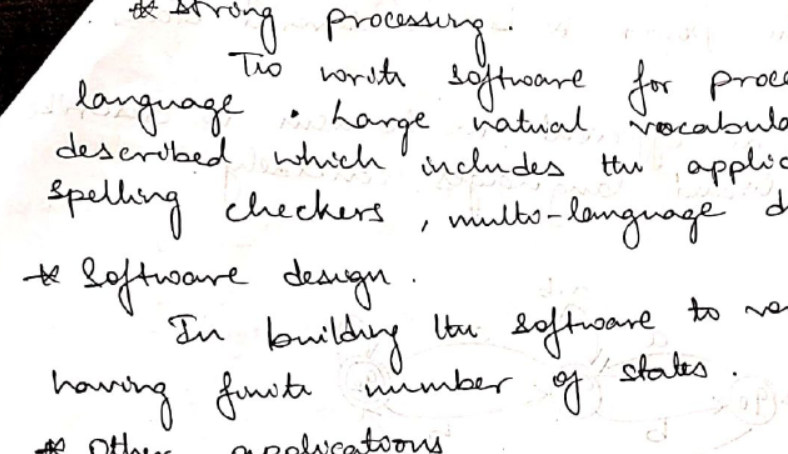 * String processing.
To write software for proce
language. Large natural vocabula
described which includes the applic
spelling checkers, multi-language d
* Software design.
In building the software to ve
having finite number of states.
* Other applications